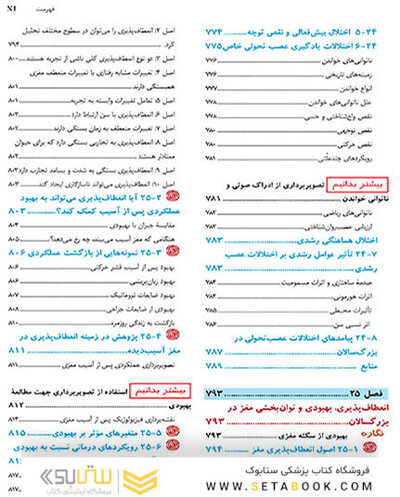 فهرست XI
۲۴-۵ اختلال بیش‌فعالی و نقص توجه ........ ۷۷۴
۲۴-۶ اختلالات یادگیری عصب تحولی خاص ۷۷۵
ناتوانی‌های خواندن
زمینه‌های تاریخی ........ ۷۷۶
انواع خواندن ........ ۷۷۷
علل ناتوانی‌های خواندن ........ ۷۷۸
نقص واج‌شناختی و حسی ........ ۷۷۸
نقص توجهی ........ ۷۸۰
نقص حرکتی ........ ۷۸۰
رویکردهای چندعاملی ........ ۷۸۱
بیشتر بدانیم تصویربرداری از ادراک صوتی و
ناتوانی خواندن ........ ۷۸۱
ناتوانی‌های ریاضی ........ ۷۸۲
ارزیابی عصب‌روان‌شناختی
اختلال هماهنگی رشدی ........ ۷۸۳
۲۴-۷ تأثیر عوامل رشدی بر اختلالات عصب
رشدی ........ ۷۸۳
صدمهٔ ساختاری و اثرات مسمومیت
اثرات هورمونی
تأثیرات محیطی ........ ۷۸۵
اثر نسبی سن ........ ۷۸۶
۲۴-۸ پیامدهای اختلالات عصب‌تحولی در
بزرگ‌سالان ........ ۷۸۷
منابع ........ ۷۸۹
فصل ۲۵ ........ ۷۹۳
انعطاف‌پذیری، بهبودی و توان‌بخشی مغز در
بزرگ‌سالان ........ ۷۹۳
نگاره بهبودی از سکته مغزی ........ ۷۹۳
۲۵-۱ اصول انعطاف‌پذیری مغز ........ ۷۹۴
اصل ۲: انعطاف‌پذیری را می‌توان در سطوح مختلف تحلیل
کرد. ........ ۷۹۴
اصل ۳: دو نوع انعطاف‌پذیری کلی ناشی از تجربه هستند ... ۸۰۰
اصل ۴: تغییرات مشابه رفتاری با تغییرات منعطف مغزی
همبستگی دارند
اصل ۵: تعامل تغییرات وابسته به تجربه
اصل ۶: انعطاف‌پذیری با سن ارتباط دارد
اصل ۷: تغییرات منعطف به زمان بستگی دارند
اصل ۸: انعطاف‌پذیری به تجاربی بستگی دارد که برای حیوان
معنادار هستند
اصل ۹: انعطاف‌پذیری بستگی به شدت و بسامد تجارب دارد ۸۰۲
اصل ۱۰: انعطاف‌پذیری می‌تواند ناسازگاری ایجاد کند.
۲۵-۲ آیا انعطاف‌پذیری می‌تواند به بهبود
عملکردی پس از آسیب کمک کند؟ ........ ۸۰۳
مقایسهٔ جبران با بهبودی
هنگامی که مغز آسیب می‌بیند چه رخ می‌دهد؟
۲۵-۳ نمونه‌هایی از بازگشت عملکردی ۸۰۶
بهبود پس از آسیب قشر حرکتی
بهبود زبان‌پریشی
بهبود ضایعات تروماتیک
بهبودی از ضایعات جراحی
بازگشت به زندگی روزمره
۲۵-۴ پژوهش در زمینه انعطاف‌پذیری در
مغز آسیب‌دیده ........ ۸۱۱
تصویربرداری عملکردی پس از آسیب مغزی
بیشتر بدانیم استفاده از تصویربرداری جهت مطالعهٔ
بهبودی ........ ۸۱۲
نقشه‌برداری فیزیولوژیک پس از آسیب مغزی
۲۵-۵ متغیرهای مؤثر بر بهبودی ........ ۸۱۵
۲۵-۶ رویکردهای درمانی نسبت به بهبودی
ستابوک
فروشگاه اینترنتی کتاب
فروشگاه کتاب پزشکی ستابوک
WWW.SETABOOK.COM